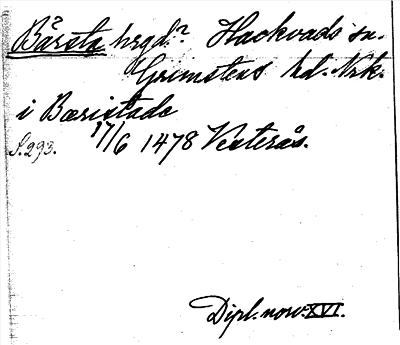 Bårsta hrgd.? Hackvads sn.
Grimstens hd. Nrk.
i Bæristade
S. 293. 17/6 1478 Vesterås.
Dipl. norv. XVI.